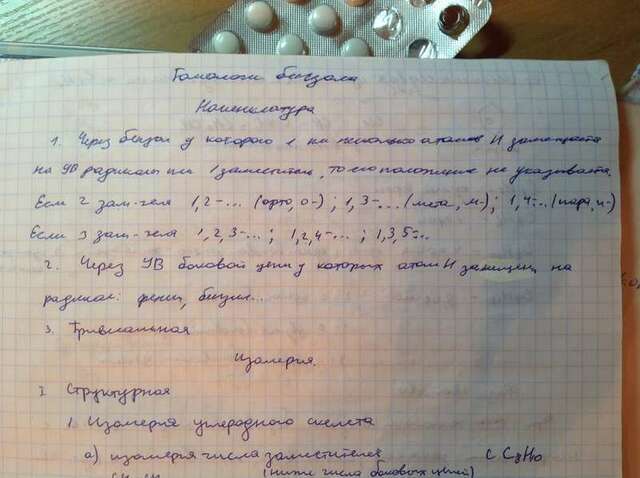 Гомологи бензола
Номенклатура
1. Через бензол у которого 1 или несколько атомов H замещаются
на УВ радикалы если 1 заместитель, то его положение не указывается.
Если 2 зам-теля 1,2-... (орто, о-); 1,3-... (мета, м-); 1,4-... (пара, п-)
Если 3 зам-теля 1,2,3-...; 1,2,4-...; 1,3,5-...
2. Через УВ боковой цепи у которых атом H замещен на
радикал: фенил, бензил...
3. Тривиальная
Изомерия.
I Структурная
1. Изомерия углеродного скелета
а) изомерия числа заместителей С C8H10
(ниже числа боковых цепей)